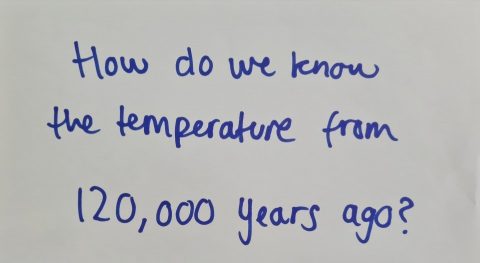 How do we know
the temperature from
120,000 years ago?